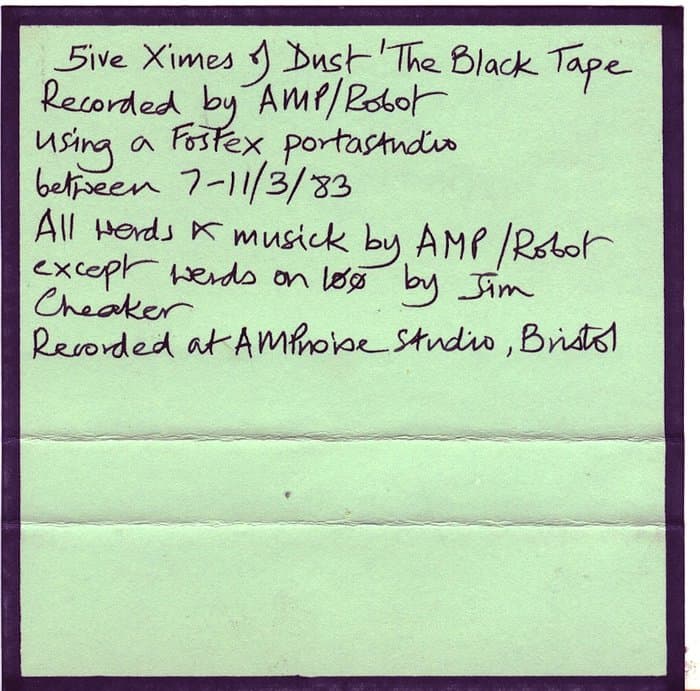 5ive Ximes of Dust 'The Black Tape
Recorded by AMP/Robot
using a Fostex portastudio
between 7-11/3/83
All werds & musick by AMP/Robot
except werds on 100 by Jim
Cheaker
Recorded at AMPnoise Studio, Bristol